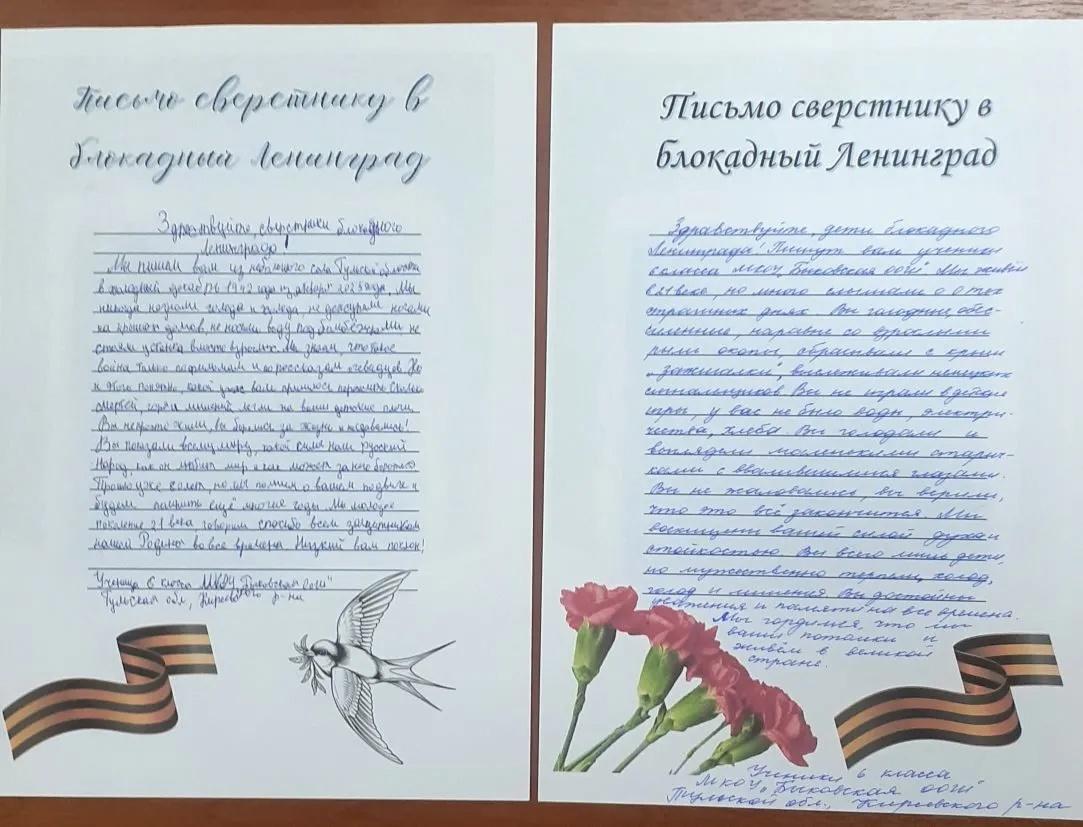 Письмо сверстнику в
блокадный Ленинград
Здравствуйте, сверстники блокадного
Ленинграда!
Мы пишем вам из небольшого села Тульской области
в холодный декабрь 1942 года из января 2023 года. Мы
никогда не знали голода и холода, не дежурили ночами
на крышах домов, не носили воду под бомбёжками, не
стояли у станка вместо взрослых. Мы знаем, что такое
война только по фильмам и по рассказам очевидцев. Но
и этого понятно, какой ужас вам пришлось пережить. Сколько
смертей, горя и лишений легли на ваши детские плечи.
Вы не просто жили, вы боролись за жизнь и не сдавались!
Вы показали всему миру, какой силён наш русский
народ, как он любит мир и как может за него бороться.
Прошло уже лет, но мы помним о вашем подвиге и
будем помнить ещё многие годы. Мы молодое
поколение 21 века говорим спасибо всем защитникам
нашей Родины во все времена. Низкий вам поклон!
Ученица 6 класса МКОУ "Быковская ООШ"
Тульская обл, Киреевского р-на
Письмо сверстнику в
блокадный Ленинград
Здравствуйте, дети блокадного
Ленинграда! Пишут вам ученики
6 класса МКОУ "Быковская ООШ". Мы живём
в 21 веке, но много слышали о тех
страшных днях. Вы голодные, обес-
силенные, наравне со взрослыми
рыли окопы, сбрасывали с крыш
"зажигалки", выслеживали немецких
сигнальщиков. Вы не играли в детские
игры, у вас не было воды, электри-
чества, хлеба. Вы голодали и
выглядели маленькими старич-
ками с ввалившимися глазами.
Вы не жаловались, вы верили,
что это всё закончится. Мы
восхищены вашей силой духа и
стойкостью. Вы всего лишь дети,
но мужественно терпели холод,
голод и лишения. Вы достойны
уважения и памяти на все времена.
Мы гордимся что мы
ваши потомки и
живём в великой
стране.
Ученики 6 класса
МКОУ "Быковская ООШ"
Тульской обл., Киреевского р-на